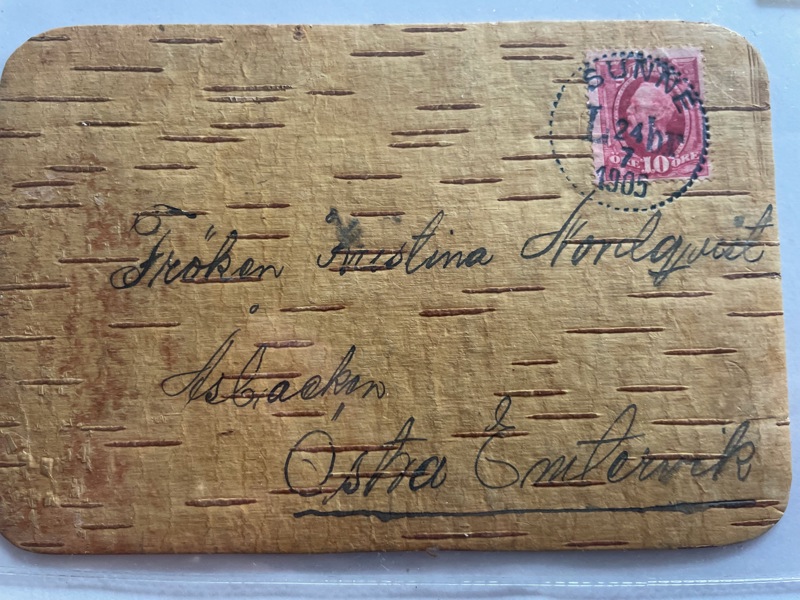 SUNNE
LBR
24
7
1905
ÖRE 10 ÖRE
Fröken Kristina Nordqvist
Åsbacken
Östra Emtervik